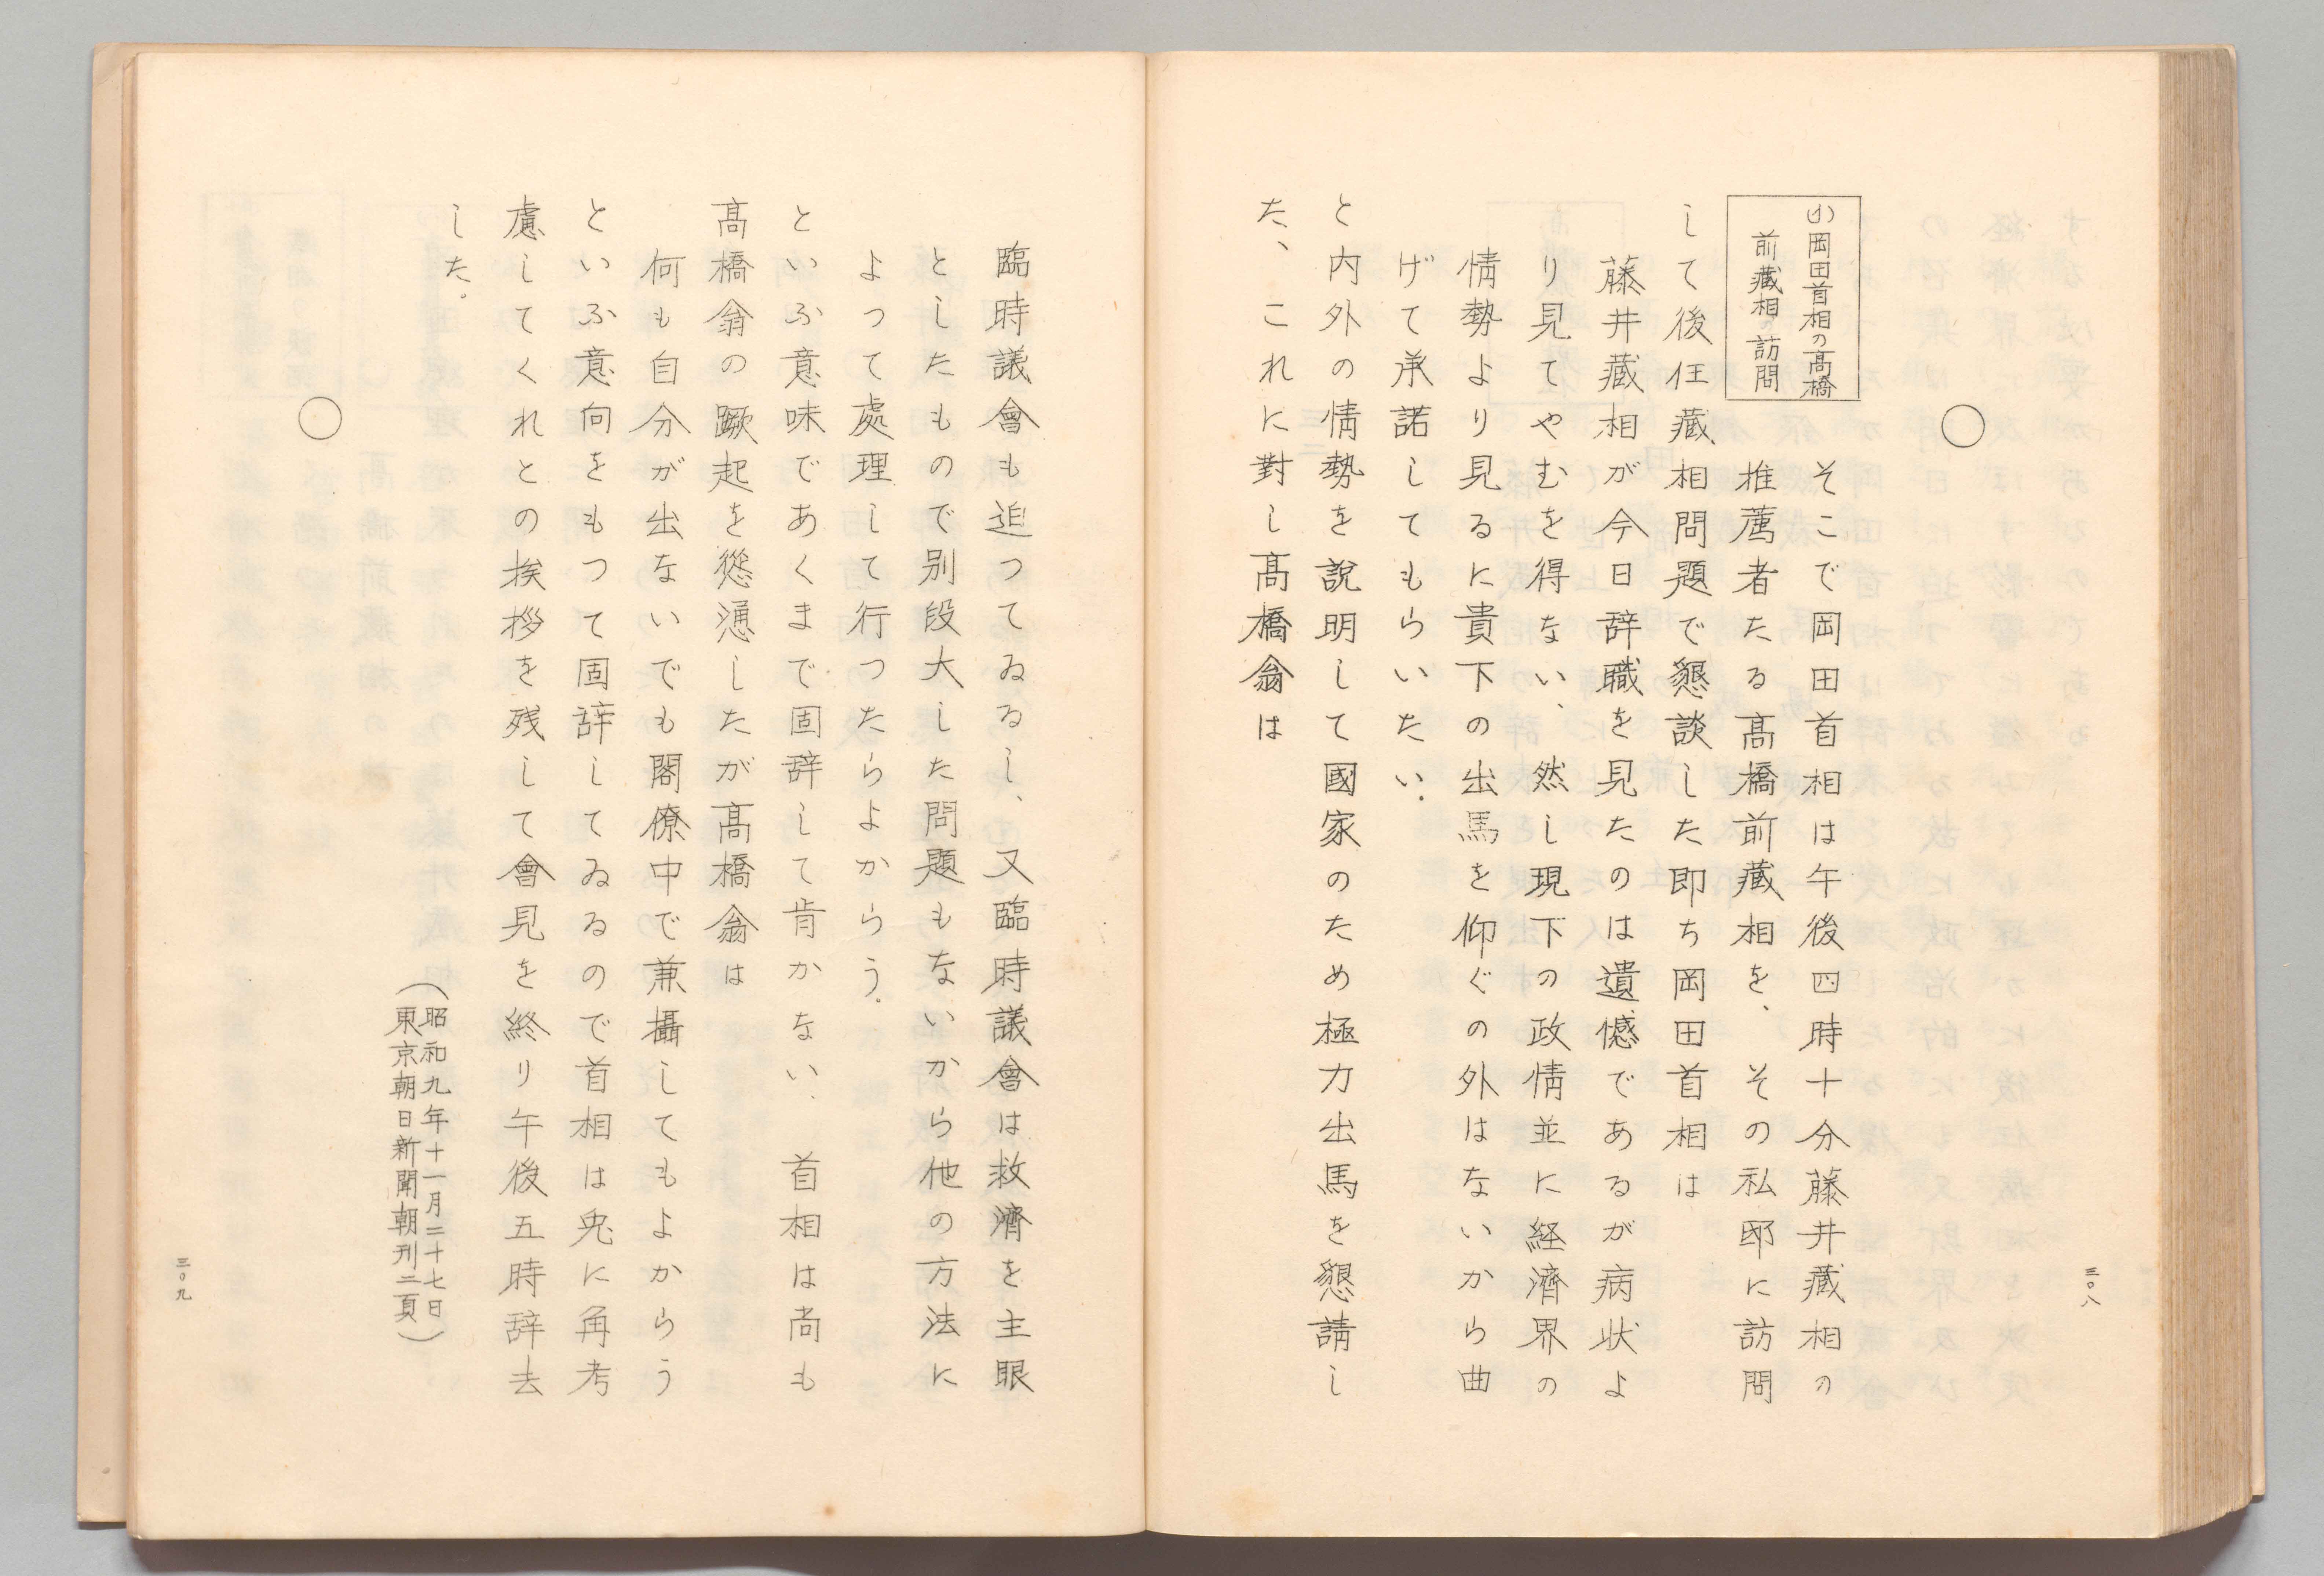 ○
(1)岡田首相の髙橋
前藏相の訪問
そこで岡田首相は午後四時十分藤井藏相の
推薦者たる髙橋前藏相を、その私邸に訪問
して後任藏相問題で懇談した即ち岡田首相は
藤井藏相が今日辞職を見たのは遺憾であるが病状よ
り見てやむを得ない、然し現下の政情並に経濟界の
情勢より見るに貴下の出馬を仰ぐの外はないから曲
げて承諾してもらいたい.
と内外の情勢を說明して國家のため極力出馬を懇請し
た、これに對し髙橋翁は
三〇八
臨時議會も迫つてゐるし、又臨時議會は救濟を主眼
としたもので別段大した問題もないから他の方法に
よつて處理して行つたらよからう.
といふ意味であくまで固辞して肯かない、首相は尚も
髙橋翁の蹶起を慫慂したが髙橋翁は
何も自分が出ないでも閣僚中で兼攝してもよからう
といふ意向をもつて固辞してゐるので首相は兎に角再考
慮してくれとの挨拶を残して會見を終り午後五時辞去
した。
(昭和九年十一月二十七日
東京朝日新聞朝刊二頁)
○
三〇九